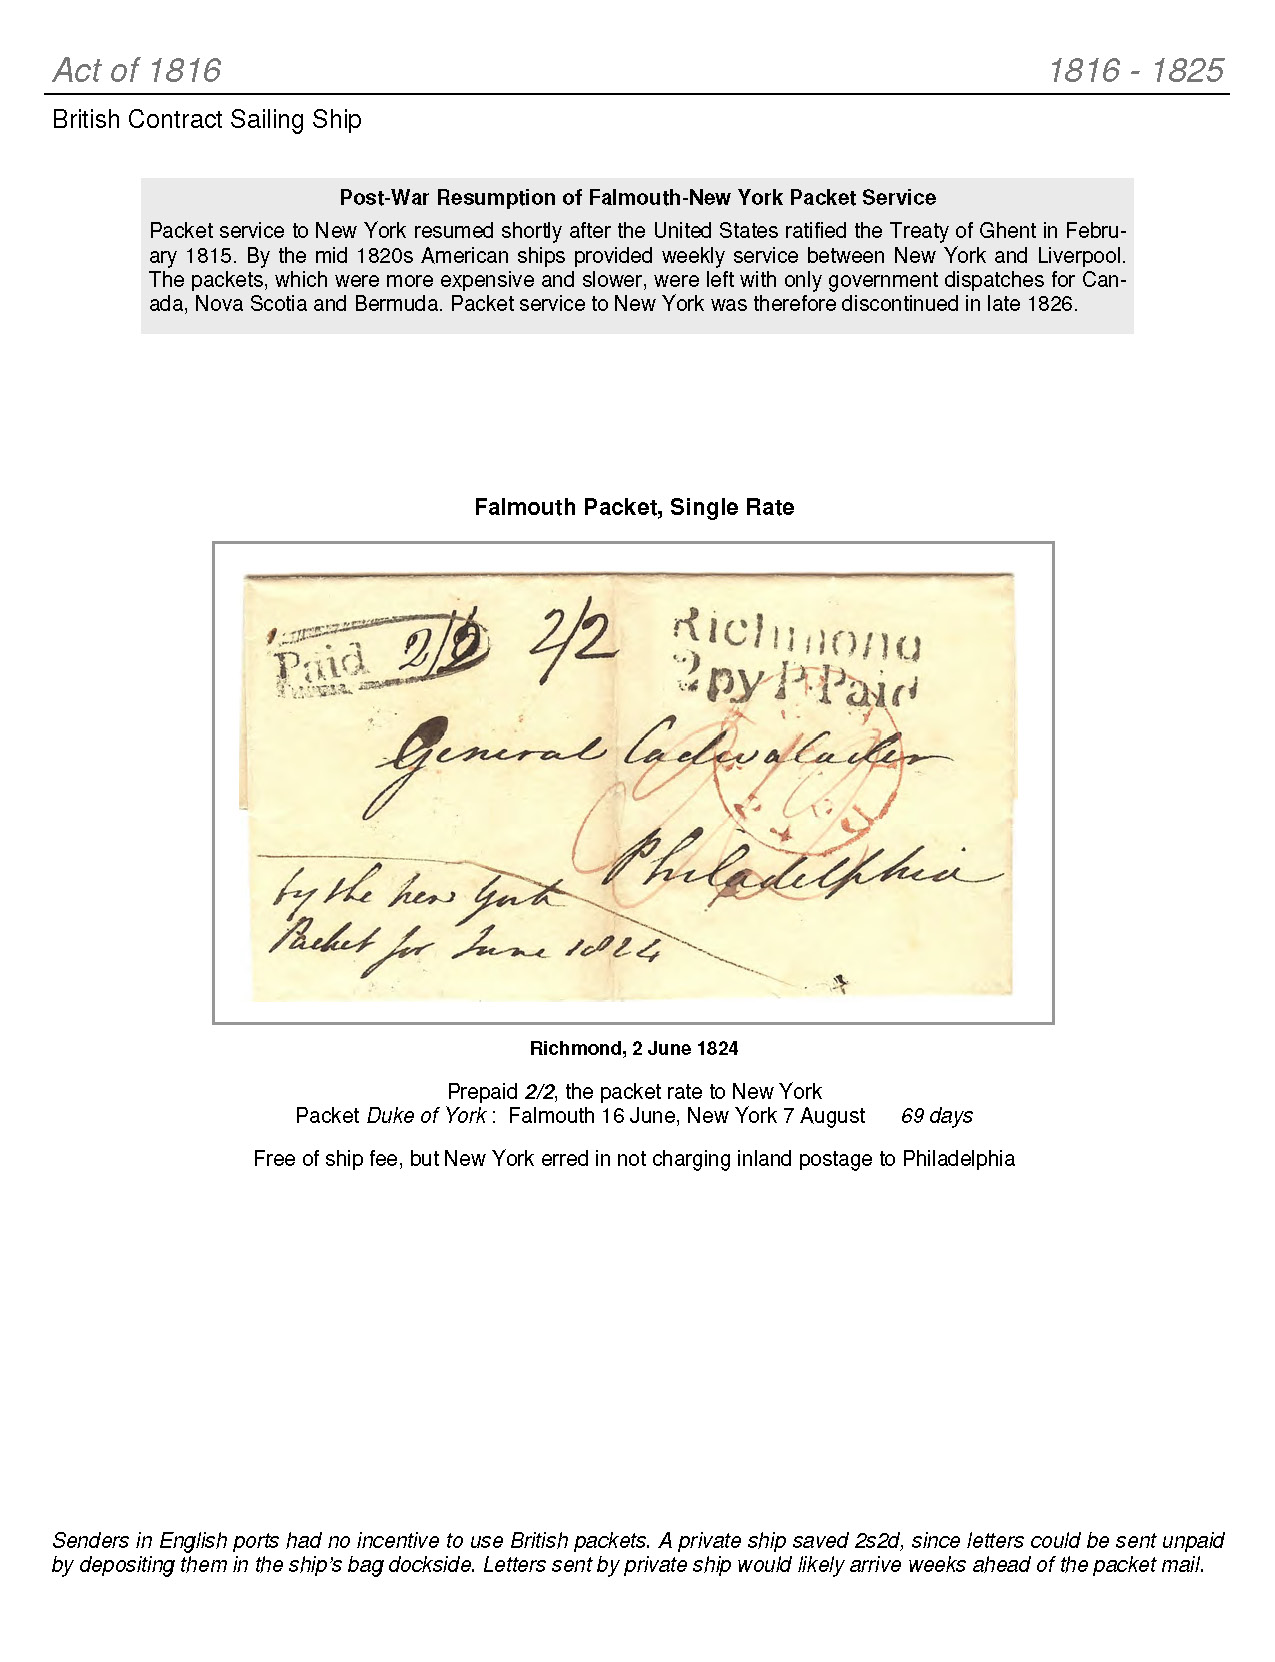 Act of 1816 1816 - 1825
British Contract Sailing Ship
Post-War Resumption of Falmouth-New York Packet Service
Packet service to New York resumed shortly after the United States ratified the Treaty of Ghent in Febru-
ary 1815. By the mid 1820s American ships provided weekly service between New York and Liverpool.
The packets, which were more expensive and slower, were left with only government dispatches for Can-
ada, Nova Scotia and Bermuda. Packet service to New York was therefore discontinued in late 1826.
Falmouth Packet, Single Rate
Paid 2/2 2/2 Richmond
2py P Paid
General Cadwalader
Philadelphia
by the New York
Packet for June 1824
Richmond, 2 June 1824
Prepaid 2/2, the packet rate to New York
Packet Duke of York : Falmouth 16 June, New York 7 August 69 days
Free of ship fee, but New York erred in not charging inland postage to Philadelphia
Senders in English ports had no incentive to use British packets. A private ship saved 2s2d, since letters could be sent unpaid
by depositing them in the ship's bag dockside. Letters sent by private ship would likely arrive weeks ahead of the packet mail.